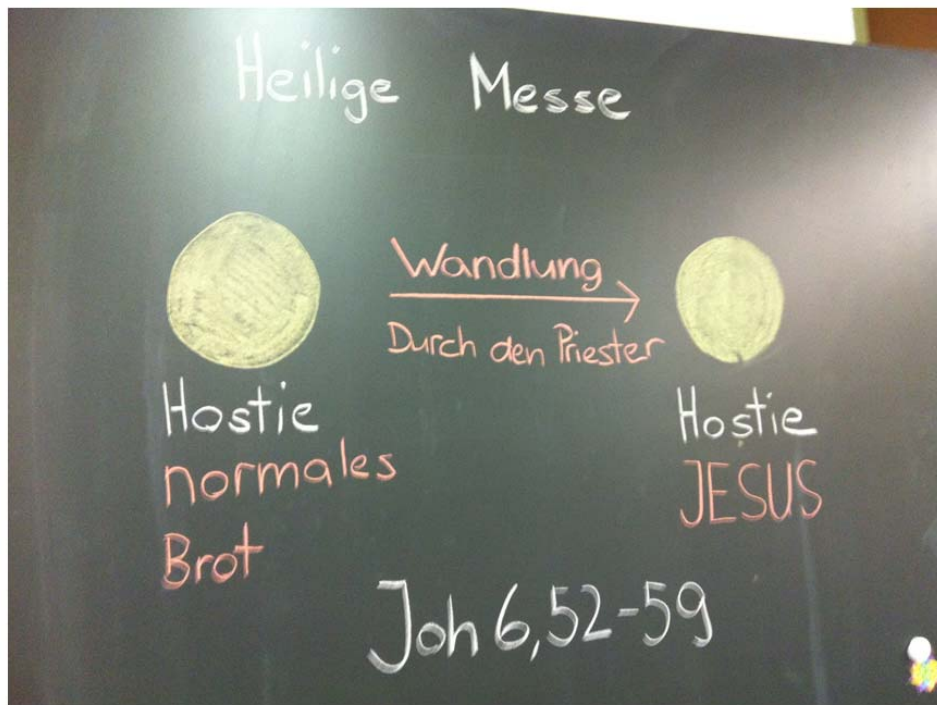 Heilige Messe
Wandlung
Durch den Priester
Hostie
normales
Brot
Hostie
JESUS
Joh 6,52-59